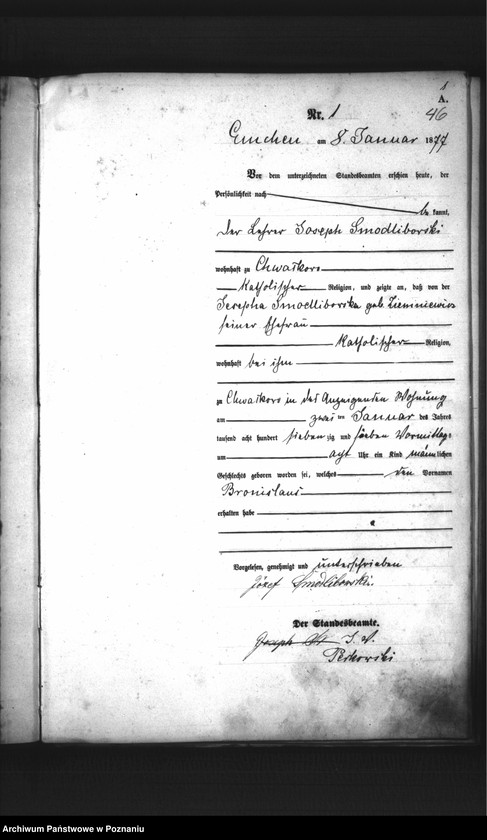 1
A.
46
Nr. 1
Emchen am 8. Januar 1877
Vor dem unterzeichneten Standesbeamten erschien heute, der
Persönlichkeit nach
be kannt,
der Lehrer Joseph Smodliborski
wohnhaft zu Chwałkowo
katholischer Religion, und zeigte an, daß von der
Josepha Smodliborska geb.
seiner Ehefrau
katholischer Religion,
wohnhaft bei ihm
zu Chwałkowo in des Anzeigenden Wohnung
am zwei ten Januar des Jahres
tausend acht hundert sieben zig und sieben Vormittags
um acht Uhr ein Kind männlichen
Geschlechts geboren worden sei, welches den Vornamen
Bronislaus
erhalten habe
Vorgelesen, genehmigt und unterschrieben
Józef Smodlibowski.
Der Standesbeamte.
Joseph I. V.
Archiwum Państwowe w Poznaniu